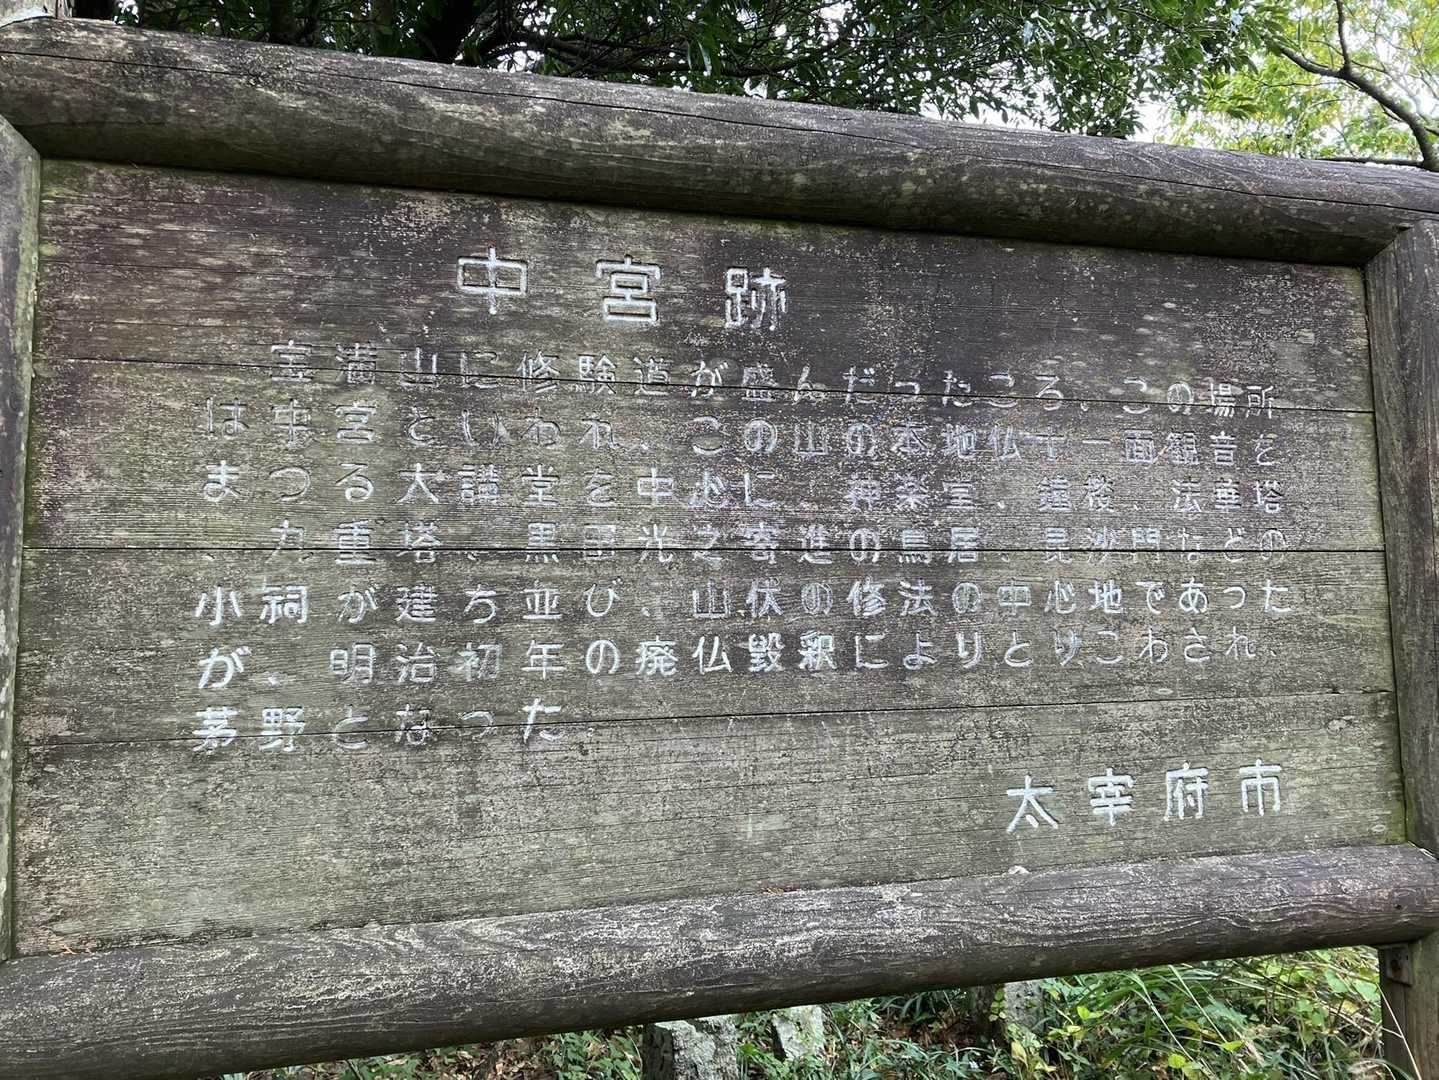 中宮跡
宝満山に修験道が盛んだったころ、この場所
は中宮といわれ、この山の本地仏十一面観音を
まつる大講堂を中心に、神楽堂、鐘楼、法華塔
、九重塔、黒田光之寄進の鳥居、毘沙門などの
小祠が建ち並び、山伏の修法の中心地であった
が、明治初年の廃仏毀釈によりとりこわされ、
茅野となった
太宰府市